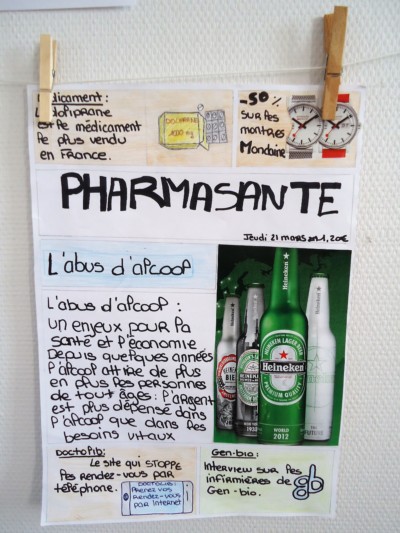 Médicament :
Le doliprane
est le médicament
le plus vendu
en France.
DOLIPRANE
1000 mg
-50%
sur les
montres
Mondaine
PHARMASANTE
Jeudi 21 mars 1,20€
L'abus d'alcool
L'abus d'alcool :
un enjeux pour la
santé et l'économie
Depuis quelques années
l'alcool attire de plus
en plus les personnes
de tout âges : l'argent
est plus dépensé dans
l'alcool que dans les
besoins vitaux
Heineken
HEINEKEN LAGER BEER
Heineken
PREMIUM QUALITY
WORLD
2012
Doctolib :
Le site qui STOPPE
les rendez-vous par
téléphone.
DOCTOLIB :
Prenez vos
Rendez-vous
par Internet
Gen-bio :
Interview sur les
infirmières de
Gen-bio.
gb